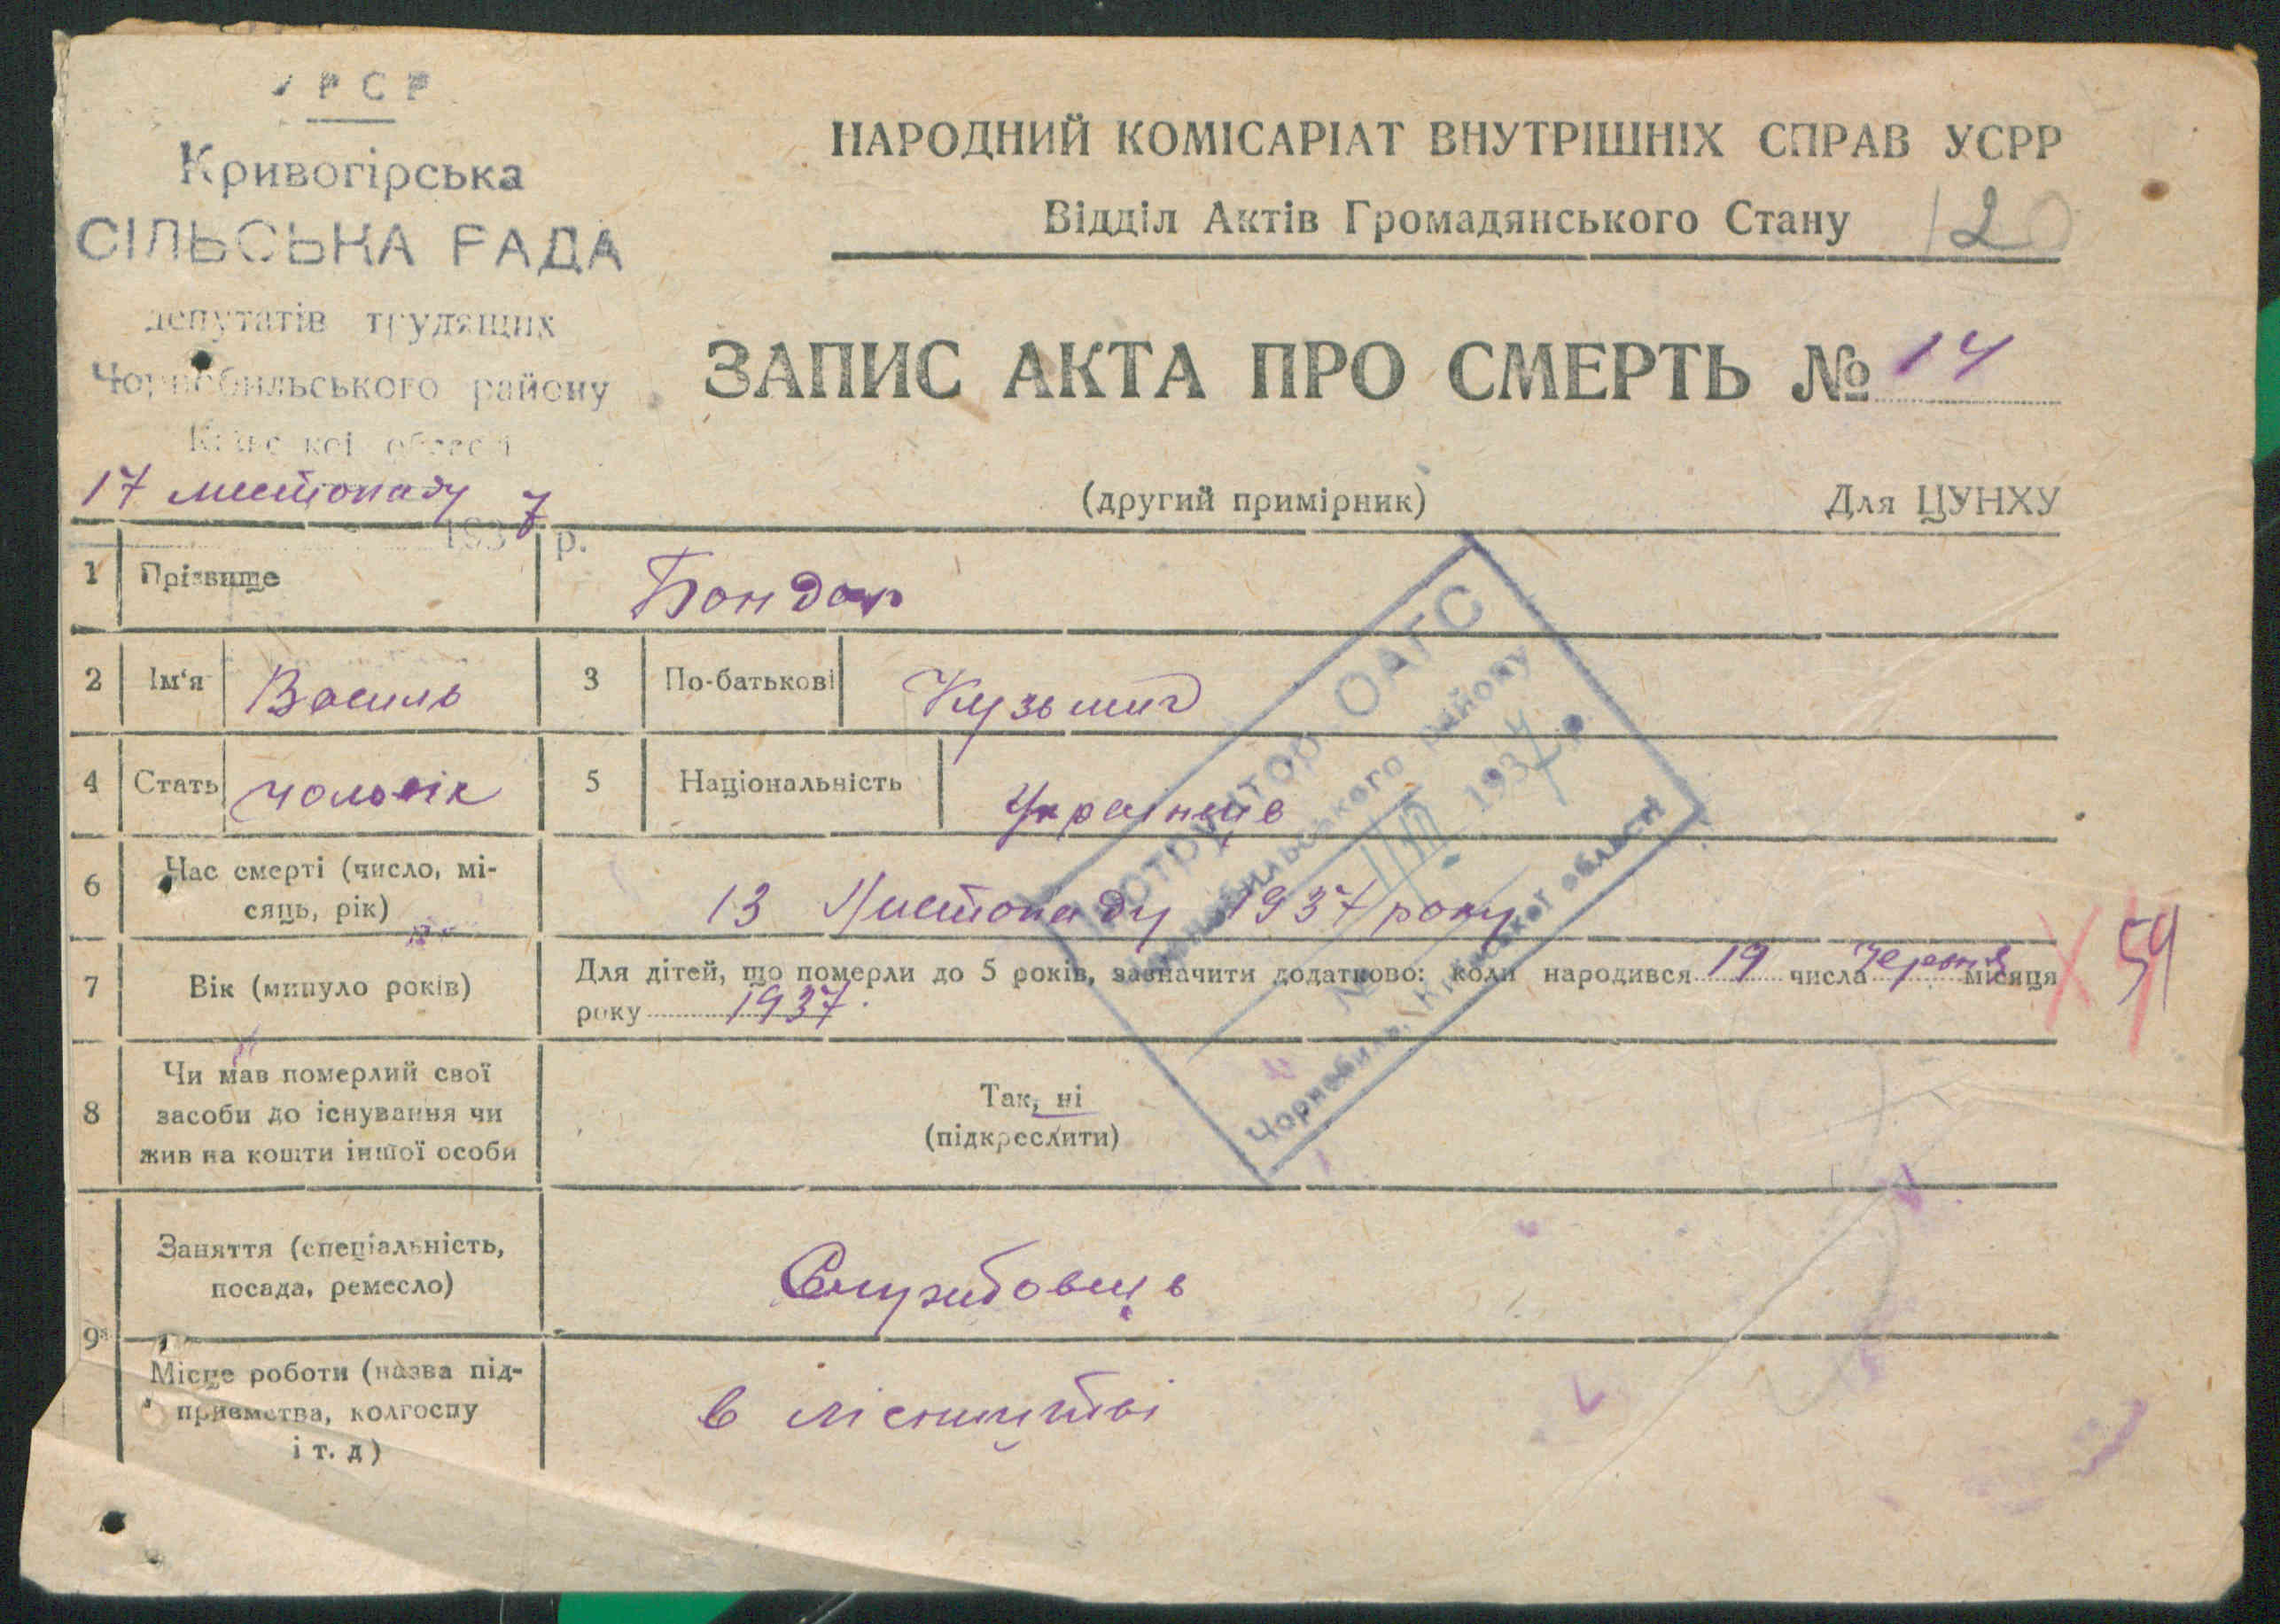 УРСР
Кривогірська
СІЛЬСЬКА РАДА
депутатів трудящих
Чорнобильського району
Київської області
17 листопаду 7
193 р.
НАРОДНИЙ КОМІСАРІАТ ВНУТРІШНІХ СПРАВ УСРР
Відділ Актів Громадянського Стану 120
ЗАПИС АКТА ПРО СМЕРТЬ № 14
(другий примірник) Для ЦУНХУ
1 Прізвище Бондар
2 Ім‘я Василь 3 По-батькові Кузьмич
4 Стать чоловік 5 Національність Українець
6 Час смерті (число, мі-
сяць, рік) 13 Листопаду 1937 року
7 Вік (минуло років) Для дітей, що померли до 5 років, зазначити додатково: коли народився 19 числа Червня місяця
року 1937.
8 Чи мав померлий свої
засоби до існування чи
жив на кошти іншої особи
Так, ні
(підкреслити)
9 Заняття (спеціальність,
посада, ремесло) Службовець
Місце роботи (назва під-
приємства, колгоспу
і т. д) в лісництві
Інструктор ОАГС
Чорнобильського району
193 р.
№
Чорнобиль, Київської області